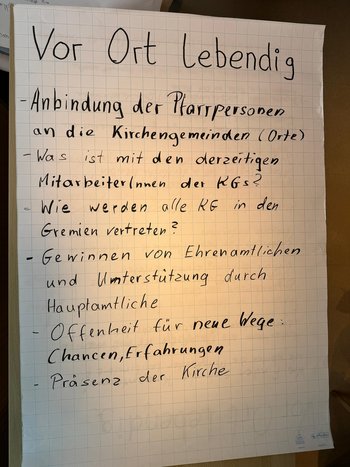 Vor Ort Lebendig
- Anbindung der Pfarrpersonen
an die Kirchengemeinden (Orte)
- Was ist mit den derzeitigen
MitarbeiterInnen der KGs?
- Wie werden alle KG in den
Gremien vertreten?
- Gewinnen von Ehrenamtlichen
und Unterstützung durch
Hauptamtliche
- Offenheit für neue Wege:
Chancen, Erfahrungen
- Präsenz der Kirche